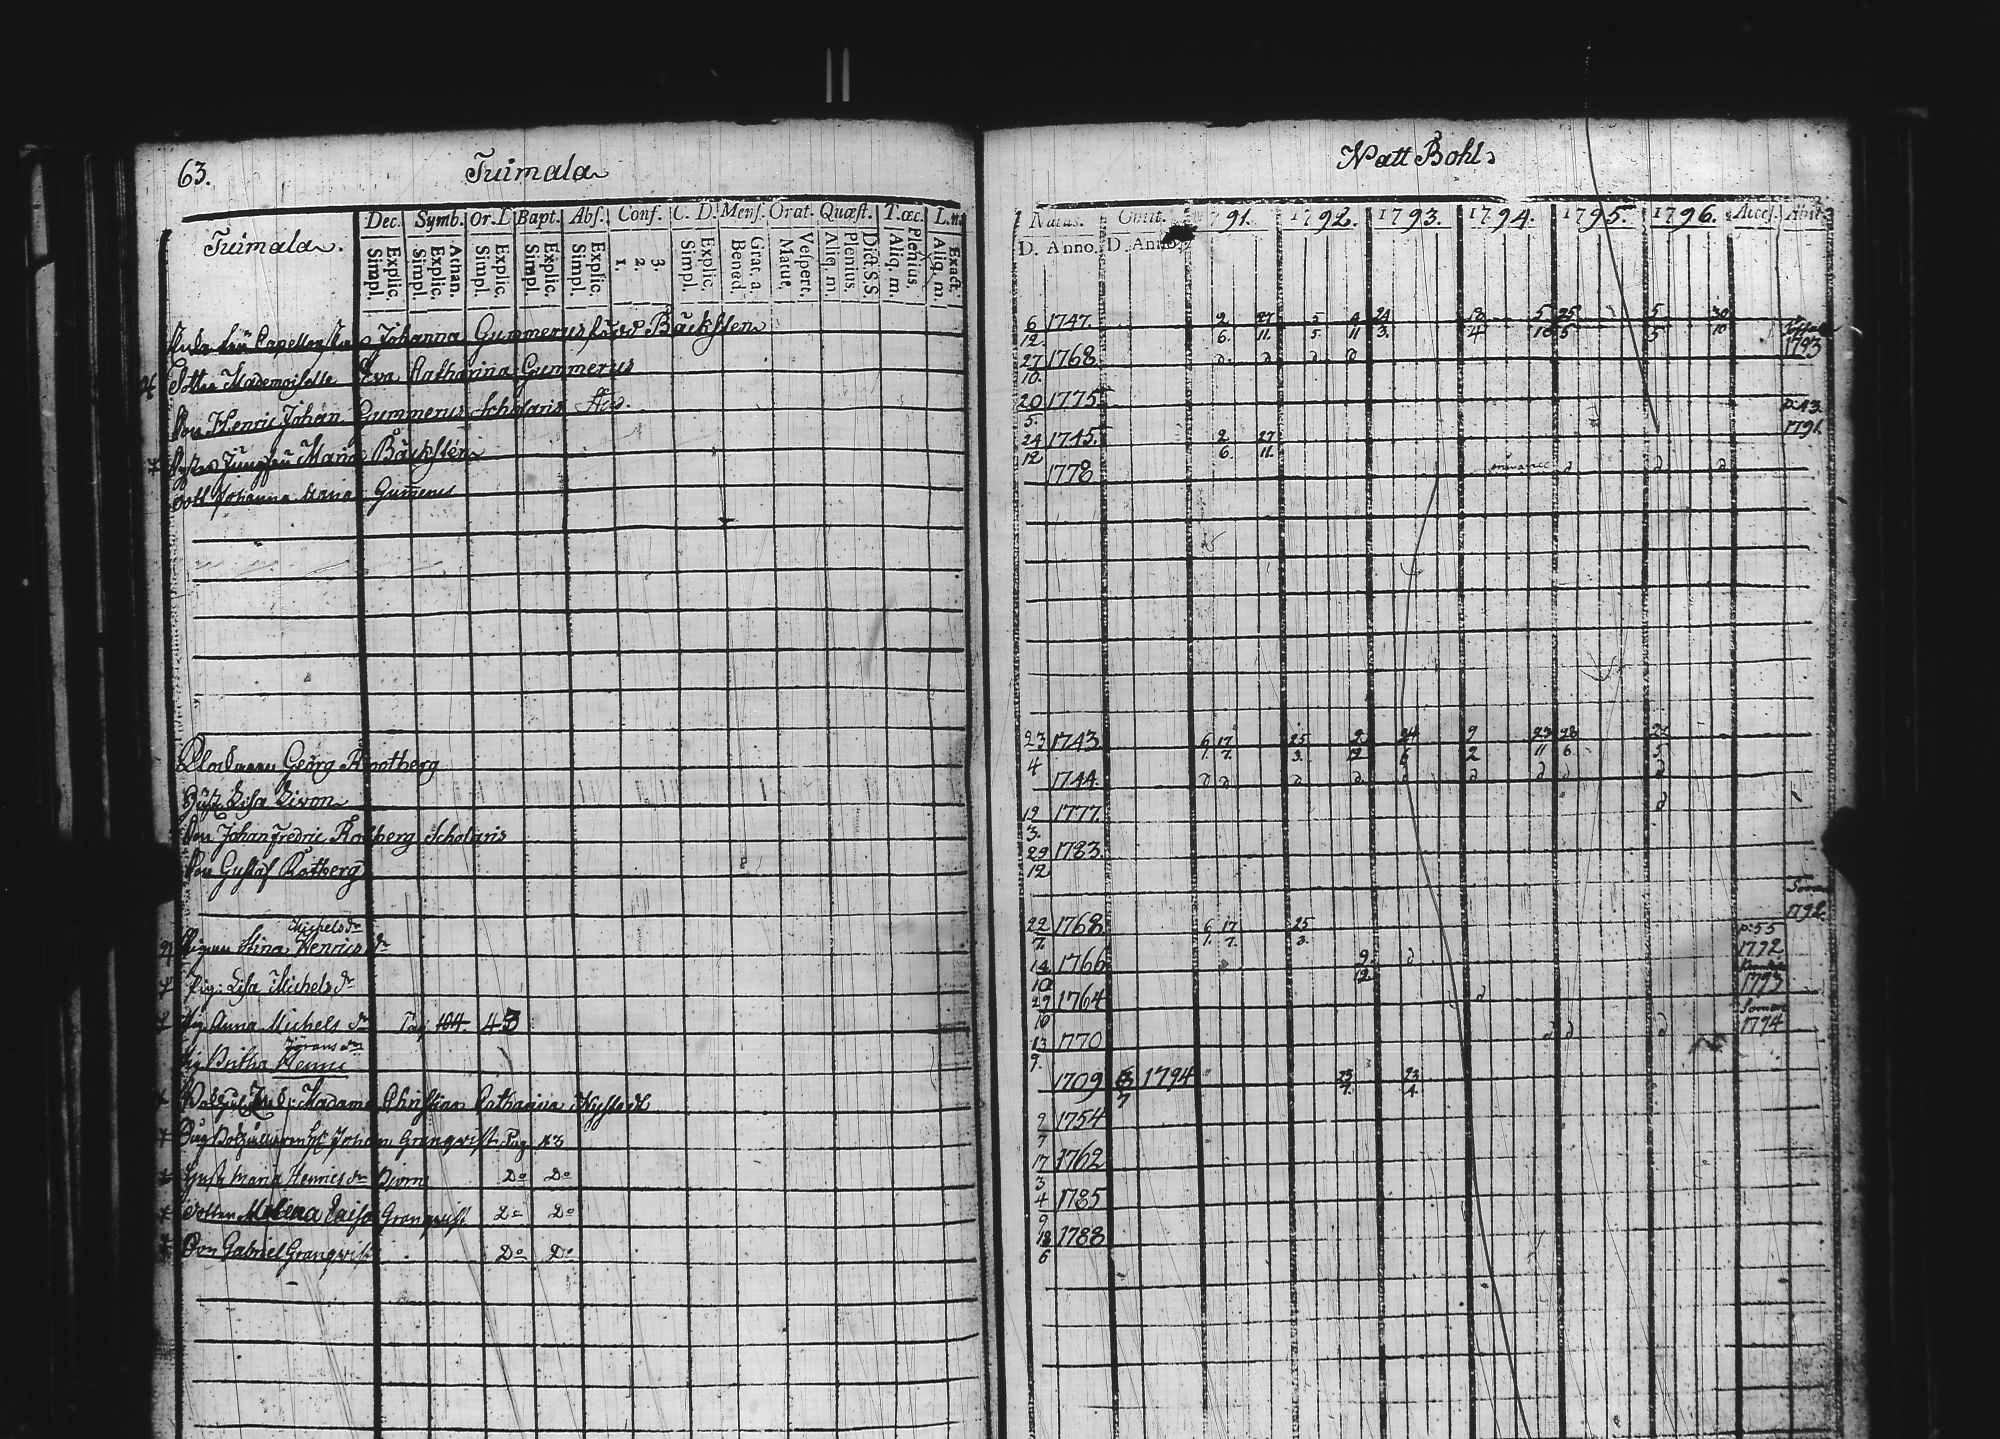 63. Tuimala
Watt Bohl.
Tuimala.
Dec. Symb. Or. D. Bapt. Abs. Conf. C. D. Mens. Orat. Quæst. T. œc.
Explic. Simpl. Athan. Explic. Simpl. Explic. Simpl. Explic. Simpl. Explic. Simpl. 3. 2. 1. Explic. Simpl. Grat. a. Bened. Vespert. Matut. Dict. S. S. Plenius. Aliq. m. Plenius. Aliq. m. Exact. Aliq. m.
Natus. Obiit. 1791. 1792. 1793. 1794. 1795. 1796. Access. Abiit.
D. Anno. D. Anno.
Johanna Gummerus född Bäcksten 6 12. 1747. 2 6. 27 11. 5 5. 9 11 24 3. 18 4 5 10 25 5 5 5 30 10
Mademoiselle Eva Catharina Gummerus 27 10. 1768. d. d d d 1793
Son Henric Johan Gummerus Scholaris Stud. 20 5. 1775
Jungfru Maria Bäcksten 24 12 1745. 2 6. 27 11. p: 13. 1791.
Johanna Maria Gum̄erus 1778 d d d
Klockaren Georg Rootberg 23 4 1743 6 1. 17 7. 25 3. 9 12 24 6 9 2 23 11 28 6. 22 5
Hust. Lisa Livon 1744. d d d d d d d d d
Son Johan Fredric Rotberg Scholaris 19 3. 1777. d
Son Gustaf Rotberg 29 12 1783.
Michels dr
Pigan Stina Henrics dr 22 7. 1768 6 1. 17 7. 25 3. 1792.
Pig: Lisa Michels dr 14 10 1766 9. 12. d p: 55 1792.
Pig Anna Michels dr Pag 104. 43 29 10 1764 d 1793
Görans dr
Pig Britha Henric 13 9. 1770 d d d 1794
Madame Christina Catharina Nystedt 1709 7 1794 23 7. 23 4.
Johan Granqvist Pag 43 9 7 1754
Hust Maria Henrics dr Do Do 17 3 1762
Dottren Helena Caisa Granqvist Do Do 4 9 1785
Son Gabriel Granqvist Do Do 18 6 1788